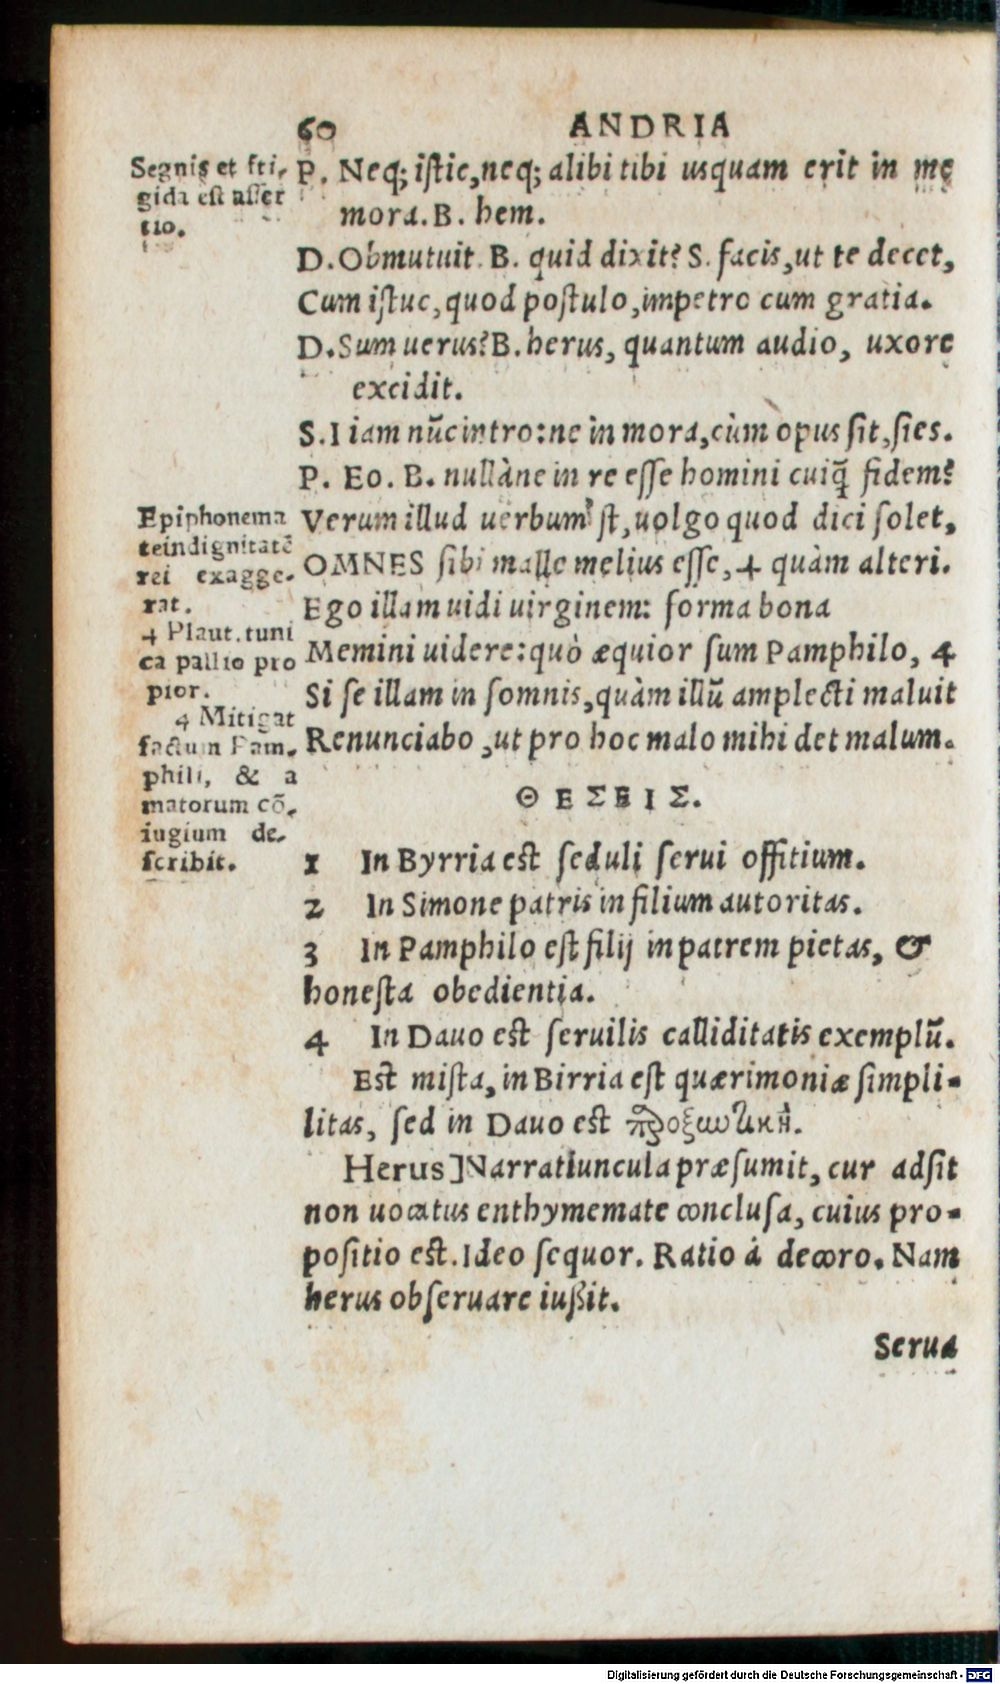 60 ANDRIA
P. Neq; istic, neq; alibi tibi usquam erit in me
mora. B. hem.
D. Obmutuit. B. quid dixit? S. facis, ut te decet,
Cum istuc, quod postulo, impetro cum gratia.
D. Sum uerus? B. herus, quantum audio, uxore
excidit.
S. I iam nūc intro: ne in mora, cùm opus sit, sies.
P. Eo. B. nullàne in re esse homini cuiq̃ fidem?
Verum illud uerbum'st, uolgo quod dici solet,
OMNES sibi malle melius esse, 4 quàm alteri.
Ego illam uidi uirginem: forma bona
Memini uidere: quò æquior sum Pamphilo, 4
Si se illam in somnis, quàm illū amplecti maluit
Renunciabo, ut pro hoc malo mihi det malum.
ΘΕΣΕΙΣ.
1 In Byrria est seduli serui offitium.
2 In Simone patris in filium autoritas.
3 In Pamphilo est filij in patrem pietas, &
honesta obedientia.
4 In Dauo est seruilis calliditatis exemplū.
Est mista, in Birria est quærimoniæ simpli-
litas, sed in Dauo est
Herus] Narratiuncula præsumit, cur adsit
non uocatus enthymemate conclusa, cuius pro-
positio est. Ideo sequor. Ratio á decoro. Nam
herus obseruare iußit.
Serua
Segnis et fri-
gida est asser
tio.
Epiphonema
te indignitatē
rei exagge-
rat.
4 Plaut. tuni
ca pallio pro
pior.
4 Mitigat
factum Pam-
phili, & a
matorum cō-
iugium de-
scribit.
Digitalisierung gefördert durch die Deutsche Forschungsgemeinschaft - DFG